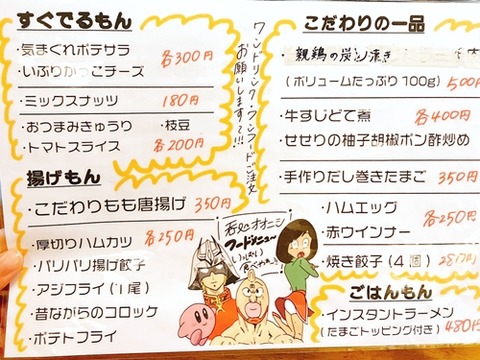 すぐでるもん
・気まぐれポテサラ
・いぶりがっこチーズ
各300円
・ミックスナッツ 180円
・おつまみきゅうり ・枝豆
・トマトスライス 各200円
揚げもん
・こだわりもも唐揚げ 350円
・厚切りハムカツ 各250円
・パリパリ揚げ餃子
・アジフライ(1尾)
・昔ながらのコロッケ
・ポテトフライ
ワンドリンク・ワンフードご注文
お願いします〜!!!
こだわりの一品
・親鶏の炭火焼き
(ボリュームたっぷり100g) 500円
・牛すじどて煮 各400円
・せせりの柚子胡椒ポン酢炒め
・手作りだし巻きたまご 350円
・ハムエッグ
・赤ウインナー
各250円
・焼き餃子(4個) 280円
ごはんもん
・インスタントラーメン
(たまごトッピング付き) 480円
呑処 オオニシ
フードメニュー
いっぱい
食べてね